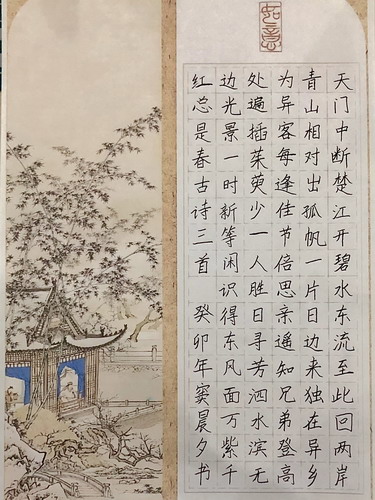 如意
天门中断楚江开碧水东流至此回两岸
青山相对出孤帆一片日边来独在异乡
为异客每逢佳节倍思亲遥知兄弟登高
处遍插茱萸少一人胜日寻芳泗水滨无
边光景一时新等闲识得东风面万紫千
红总是春古诗三首 癸卯年窦晨夕书